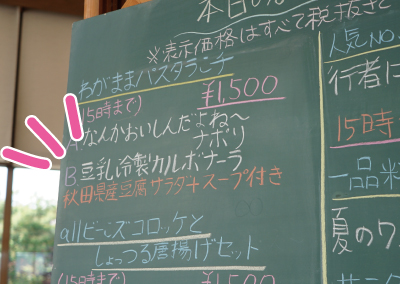 本日の
※表示価格はすべて税抜きで
わがままパスタランチ
(15時まで) ¥1,500
A なんかおいしんだよね〜
ナポリ
B 豆乳冷製カルボナーラ
秋田県産豆腐サラダ+スープ付き
allビーンズコロッケと
しょっつる唐揚げセット
(15時まで) ¥1,500
人気NO.
行者に
15時
一品料
夏のワ